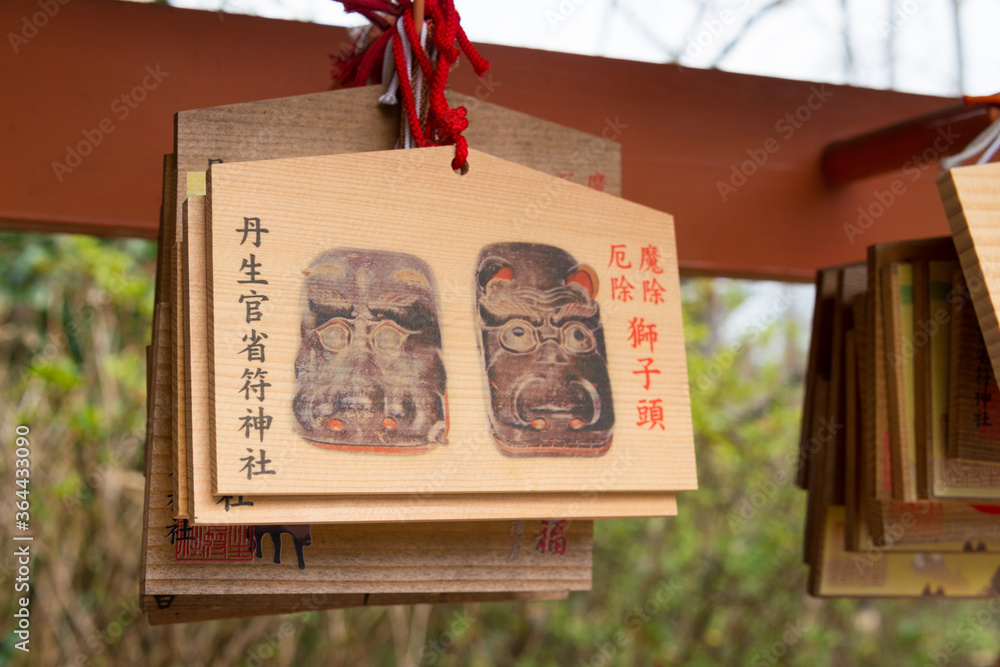 魔除
厄除
獅子頭
丹生官省符神社
社
福
神社
Adobe Stock | #364433090